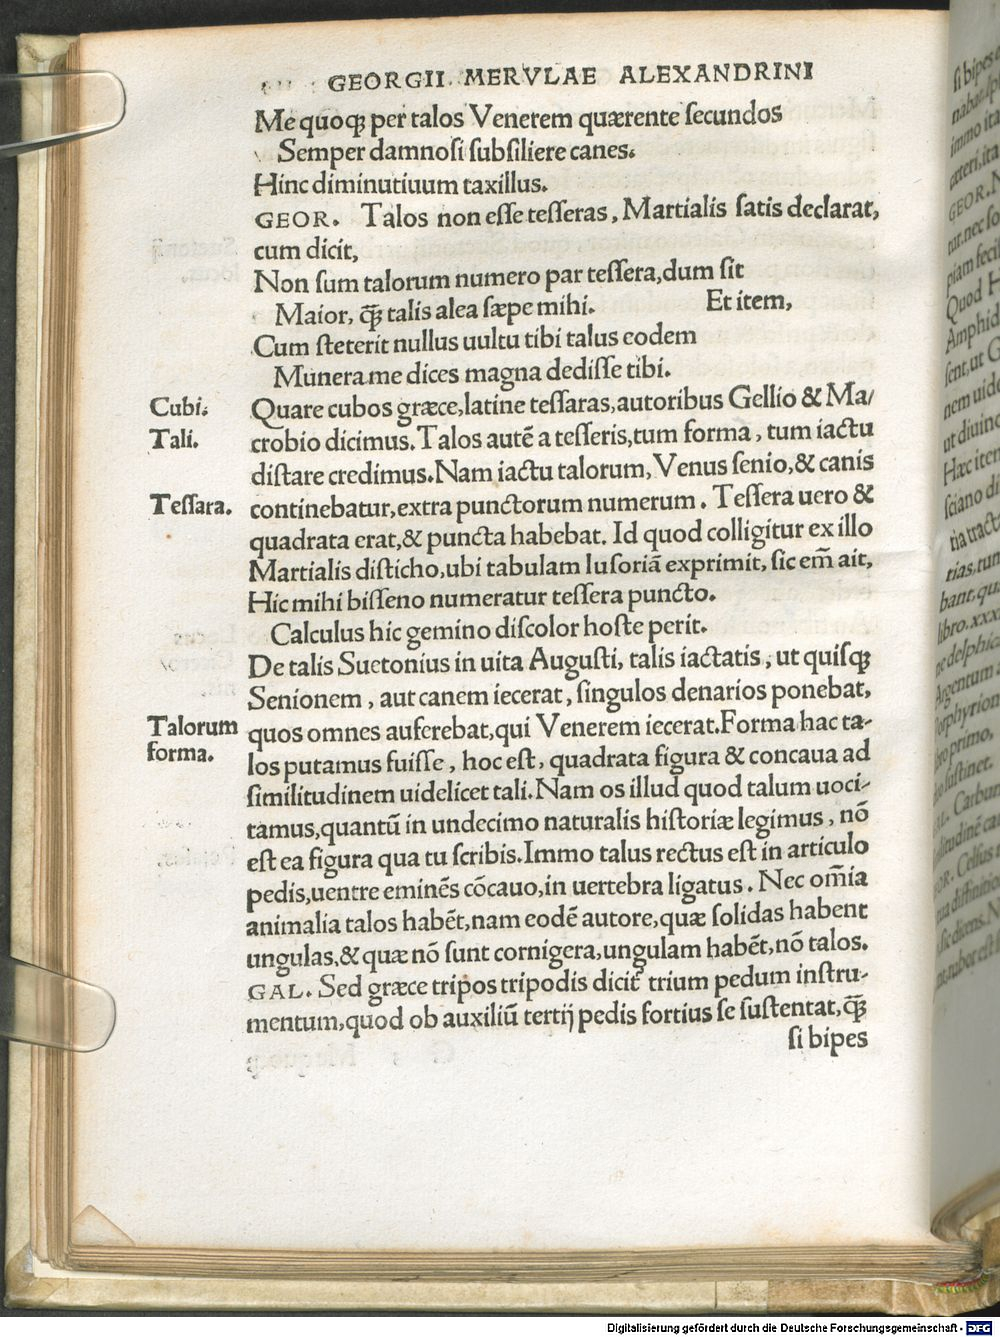 GEORGII MERVLAE ALEXANDRINI
Me quoqꝫ per talos Venerem quærente secundos
Semper damnosi subsiliere canes.
Hinc diminutiuum taxillus.
GEOR. Talos non esse tesseras, Martialis satis declarat,
cum dicit,
Non sum talorum numero par tessera, dum sit
Maior, q̃ꝫ talis alea sæpe mihi. Et item,
Cum steterit nullus uultu tibi talus eodem
Munera me dices magna dedisse tibi.
Cubi. Quare cubos græce, latine tessaras, autoribus Gellio & Ma/
Tali. crobio dicimus. Talos autẽ a tesseris, tum forma, tum iactu
distare credimus. Nam iactu talorum, Venus senio, & canis
Tessara. continebatur, extra punctorum numerum. Tessera uero &
quadrata erat, & puncta habebat. Id quod colligitur ex illo
Martialis disticho, ubi tabulam lusoriã exprimit, sic em̃ ait,
Hic mihi bisseno numeratur tessera puncto.
Calculus hic gemino discolor hoste perit.
De talis Suetonius in uita Augusti, talis iactatis, ut quisqꝫ
Senionem, aut canem iecerat, singulos denarios ponebat,
Talorum quos omnes auferebat, qui Venerem iecerat. Forma hac ta-
forma. los putamus fuisse, hoc est, quadrata figura & concaua ad
similitudinem uidelicet tali. Nam os illud quod talum uoci-
tamus, quantũ in undecimo naturalis historiæ legimus, nõ
est ea figura qua tu scribis. Immo talus rectus est in articulo
pedis, uentre eminẽs cõcauo, in uertebra ligatus. Nec om̃ia
animalia talos habẽt, nam eodẽ autore, quæ solidas habent
ungulas, & quæ nõ sunt cornigera, ungulam habẽt, nõ talos.
GAL. Sed græce tripos tripodis dicit̃ trium pedum instru-
mentum, quod ob auxiliũ tertij pedis fortius se sustentat, q̃ꝫ
si bipes
Digitalisierung gefördert durch die Deutsche Forschungsgemeinschaft - DFG